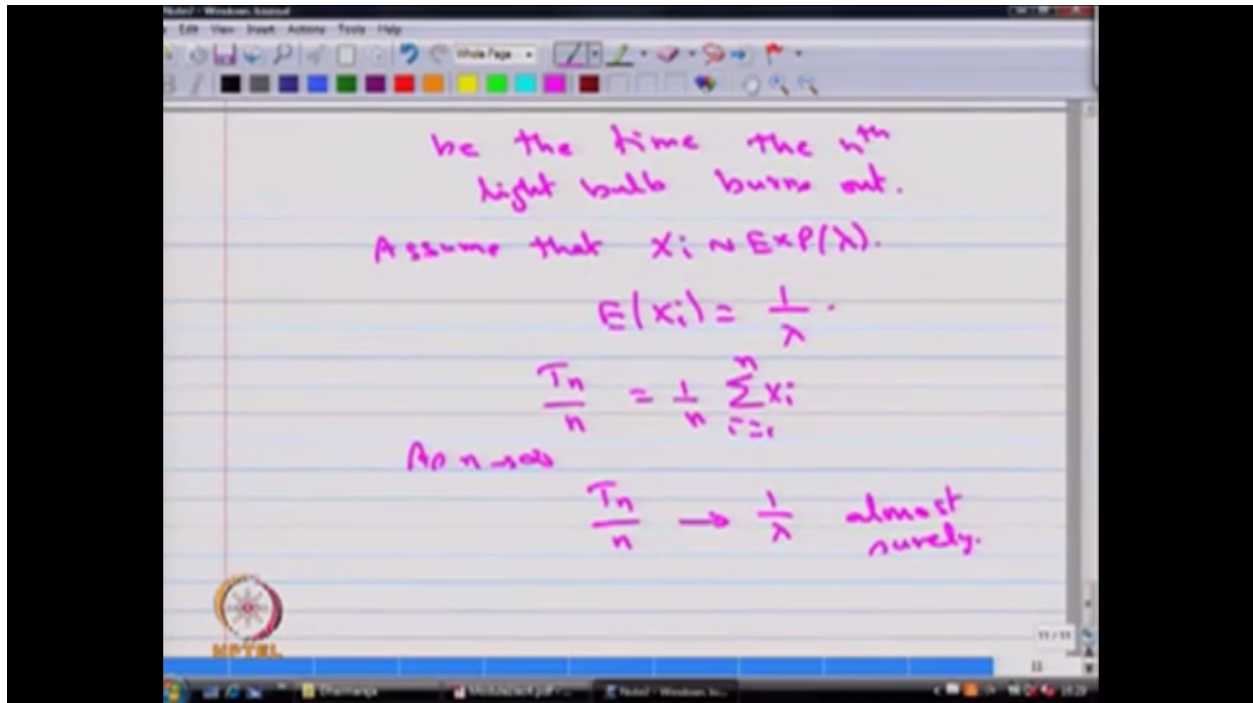 Note2 - Windows Journal
Edit View Insert Actions Tools Help
Whole Page
be the time the nth
light bulb burns out.
Assume that Xi ~ Exp(λ).
E(Xi) = 1/λ.
Tn/n = 1/n ∑_{i=1}^{n} Xi
As n→∞
Tn/n → 1/λ almost
surely.
NPTEL
11 / 11
11
Dharmaraja
Note2 - Windows Jo...